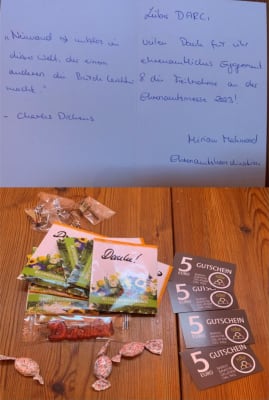 „Niemand ist nutzlos in
dieser Welt, der einem
anderen die Bürde leichter
macht."
- Charles Dickens
Liebe DARCi,
vielen Dank für Ihr
ehrenamtliches Engagement
& die Teilnahme an der
Ehrenamtsmesse 2023!
Miriam
Ehrenamtskoordination
Danke!
Danke!
5 GUTSCHEIN
EURO
5 GUTSCHEIN
EURO
5 GUTSCHEIN
EURO
5 GUTSCHEIN
EURO